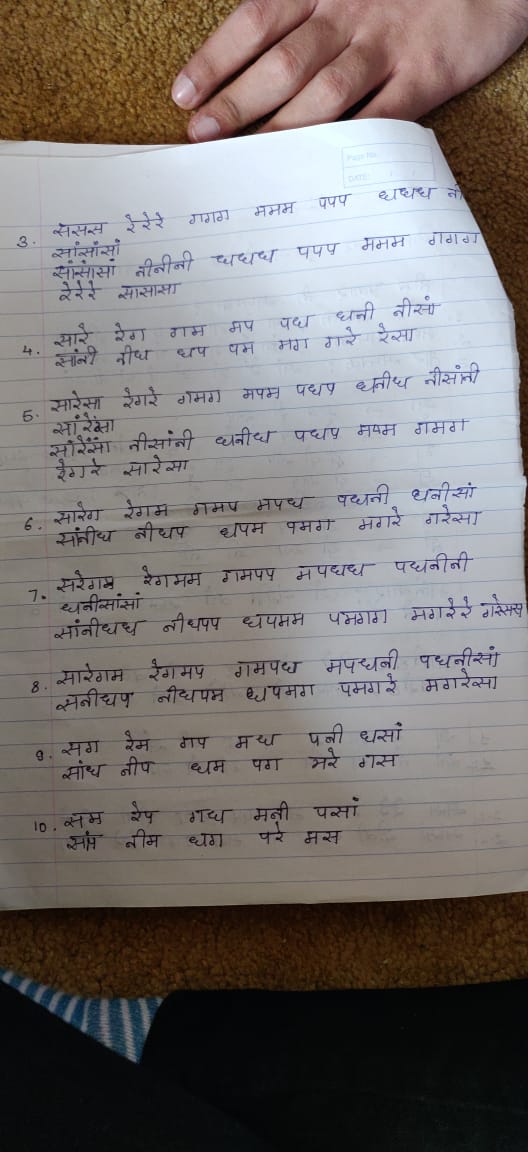 Page No.
DATE:
3.ससस रेरेरे गगग ममम पपप धधध नी
सांसांसां
सांसांसां नीनीनी धधध पपप ममम गगग
रेरेरे सासासा
4. सारे रेग गम मप पध धनी नीसां
सांनी नीध धप पम मग गरे रेसा
5. सारेसा रेगरे गमग मपम पधप धनीध नीसांनी
सांरेंसा
सांरेंसां नीसांनी धनीध पधप मपम गमग
रेगरे सारेसा
6. सारेग रेगम गमप मपध पधनी धनीसां
सांनीध नीधप धपम पमग मगरे गरेसा
7. सरेगग रेगमम गमपप मपधध पधनीनी
धनीसांसां
सांनीधध नीधपप धपमम पमगग मगरेरे गरेसस
8. सारेगम रेगमप गमपध मपधनी पधनीसां
सनीधप नीधपम धपमग पमगरे मगरेसा
9. सग रेम गप मध पनी धसां
सांध नीप धम पग मरे गस
10. सम रेप गध मनी पसां
संप नीम धग परे मस